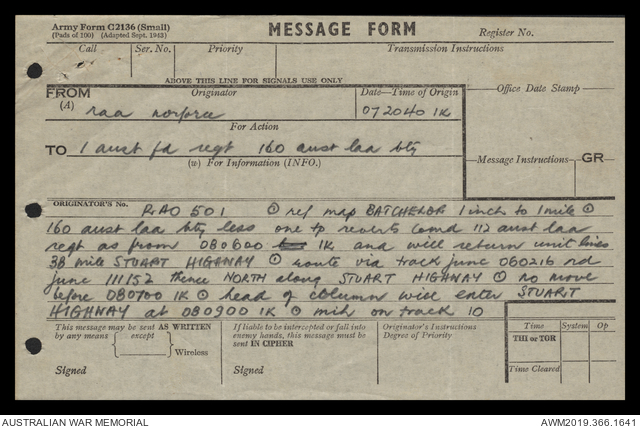 Army Form C2136 (Small)
(Pads of 100) (Adapted Sept. 1943)
MESSAGE FORM
Register No.
Call
Ser. No.
Priority
Transmission Instructions
ABOVE THIS LINE FOR SIGNALS USE ONLY
FROM
(A)
Originator
Date—Time of Origin
Office Date Stamp
raa norforce
072040 1K
For Action
TO 1 aust fd regt 160 aust laa bty
(W) For Information (INFO.)
Message Instructions
GR
ORIGINATOR'S No.
RAO 501 ⊙ ref map BATCHELOR 1 inch to 1 mile ⊙
160 aust laa bty less one tp reverts comd 112 aust laa
regt as from 080600 1K and will return unit lines
38 mile STUART HIGHWAY ⊙ route via track junc 060216 rd
junc 111152 thence NORTH along STUART HIGHWAY ⊙ no move
before 080700 1K ⊙ head of column will enter STUART
HIGHWAY at 080900 1K ⊙ mih on track 10
This message may be sent AS WRITTEN
by any means
except
Wireless
Signed
If liable to be intercepted or fall into
enemy hands, this message must be
sent IN CIPHER
Signed
Originator's Instructions
Degree of Priority
Time
System
Op
THI or TOR
Time Cleared
AUSTRALIAN WAR MEMORIAL
AWM2019.366.1641